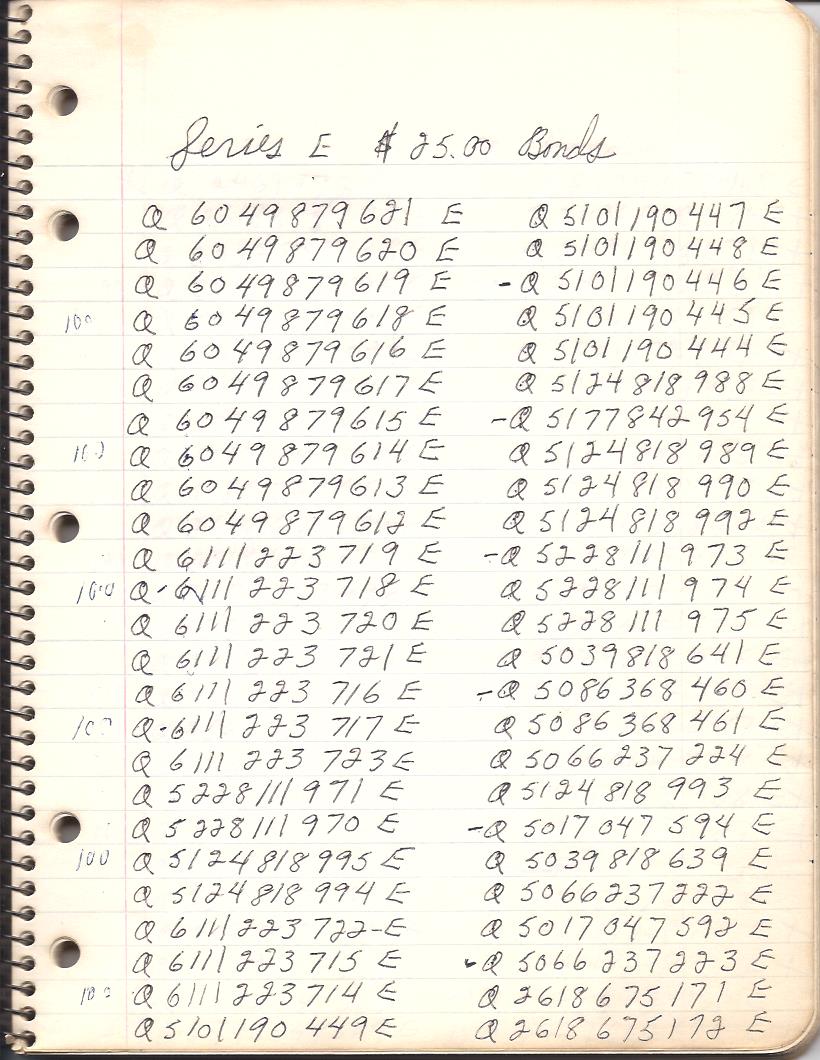 Series E $ 25.00 Bonds
Q 6049879621 E Q 5101190447 E
Q 6049879620 E Q 5101190448 E
Q 6049879619 E -Q 5101190446 E
100 Q 6049879618 E Q 5101190445 E
Q 6049879616 E Q 5101190444 E
Q 6049879617 E Q 5124818988 E
Q 6049879615 E -Q 5177842954 E
100 Q 6049879614 E Q 5124818989 E
Q 6049879613 E Q 5124818990 E
Q 6049879612 E Q 5124818992 E
Q 6111223719 E -Q 5228111973 E
100 Q-6111223718 E Q 5228111974 E
Q 6111223720 E Q 5228111975 E
Q 6111223721 E Q 5039818641 E
Q 6111223716 E -Q 5086368460 E
100 Q-6111223717 E Q 5086368461 E
Q 6111223723 E Q 5066237224 E
Q 5228111971 E Q 5124818993 E
Q 5228111970 E -Q 5017047594 E
100 Q 5124818995 E Q 5039818639 E
Q 5124818994 E Q 5066237222 E
Q 6111223722-E Q 5017047592 E
Q 6111223715 E -Q 5066237223 E
100 Q 6111223714 E Q 2618675171 E
Q 5101190449 E Q 2618675172 E